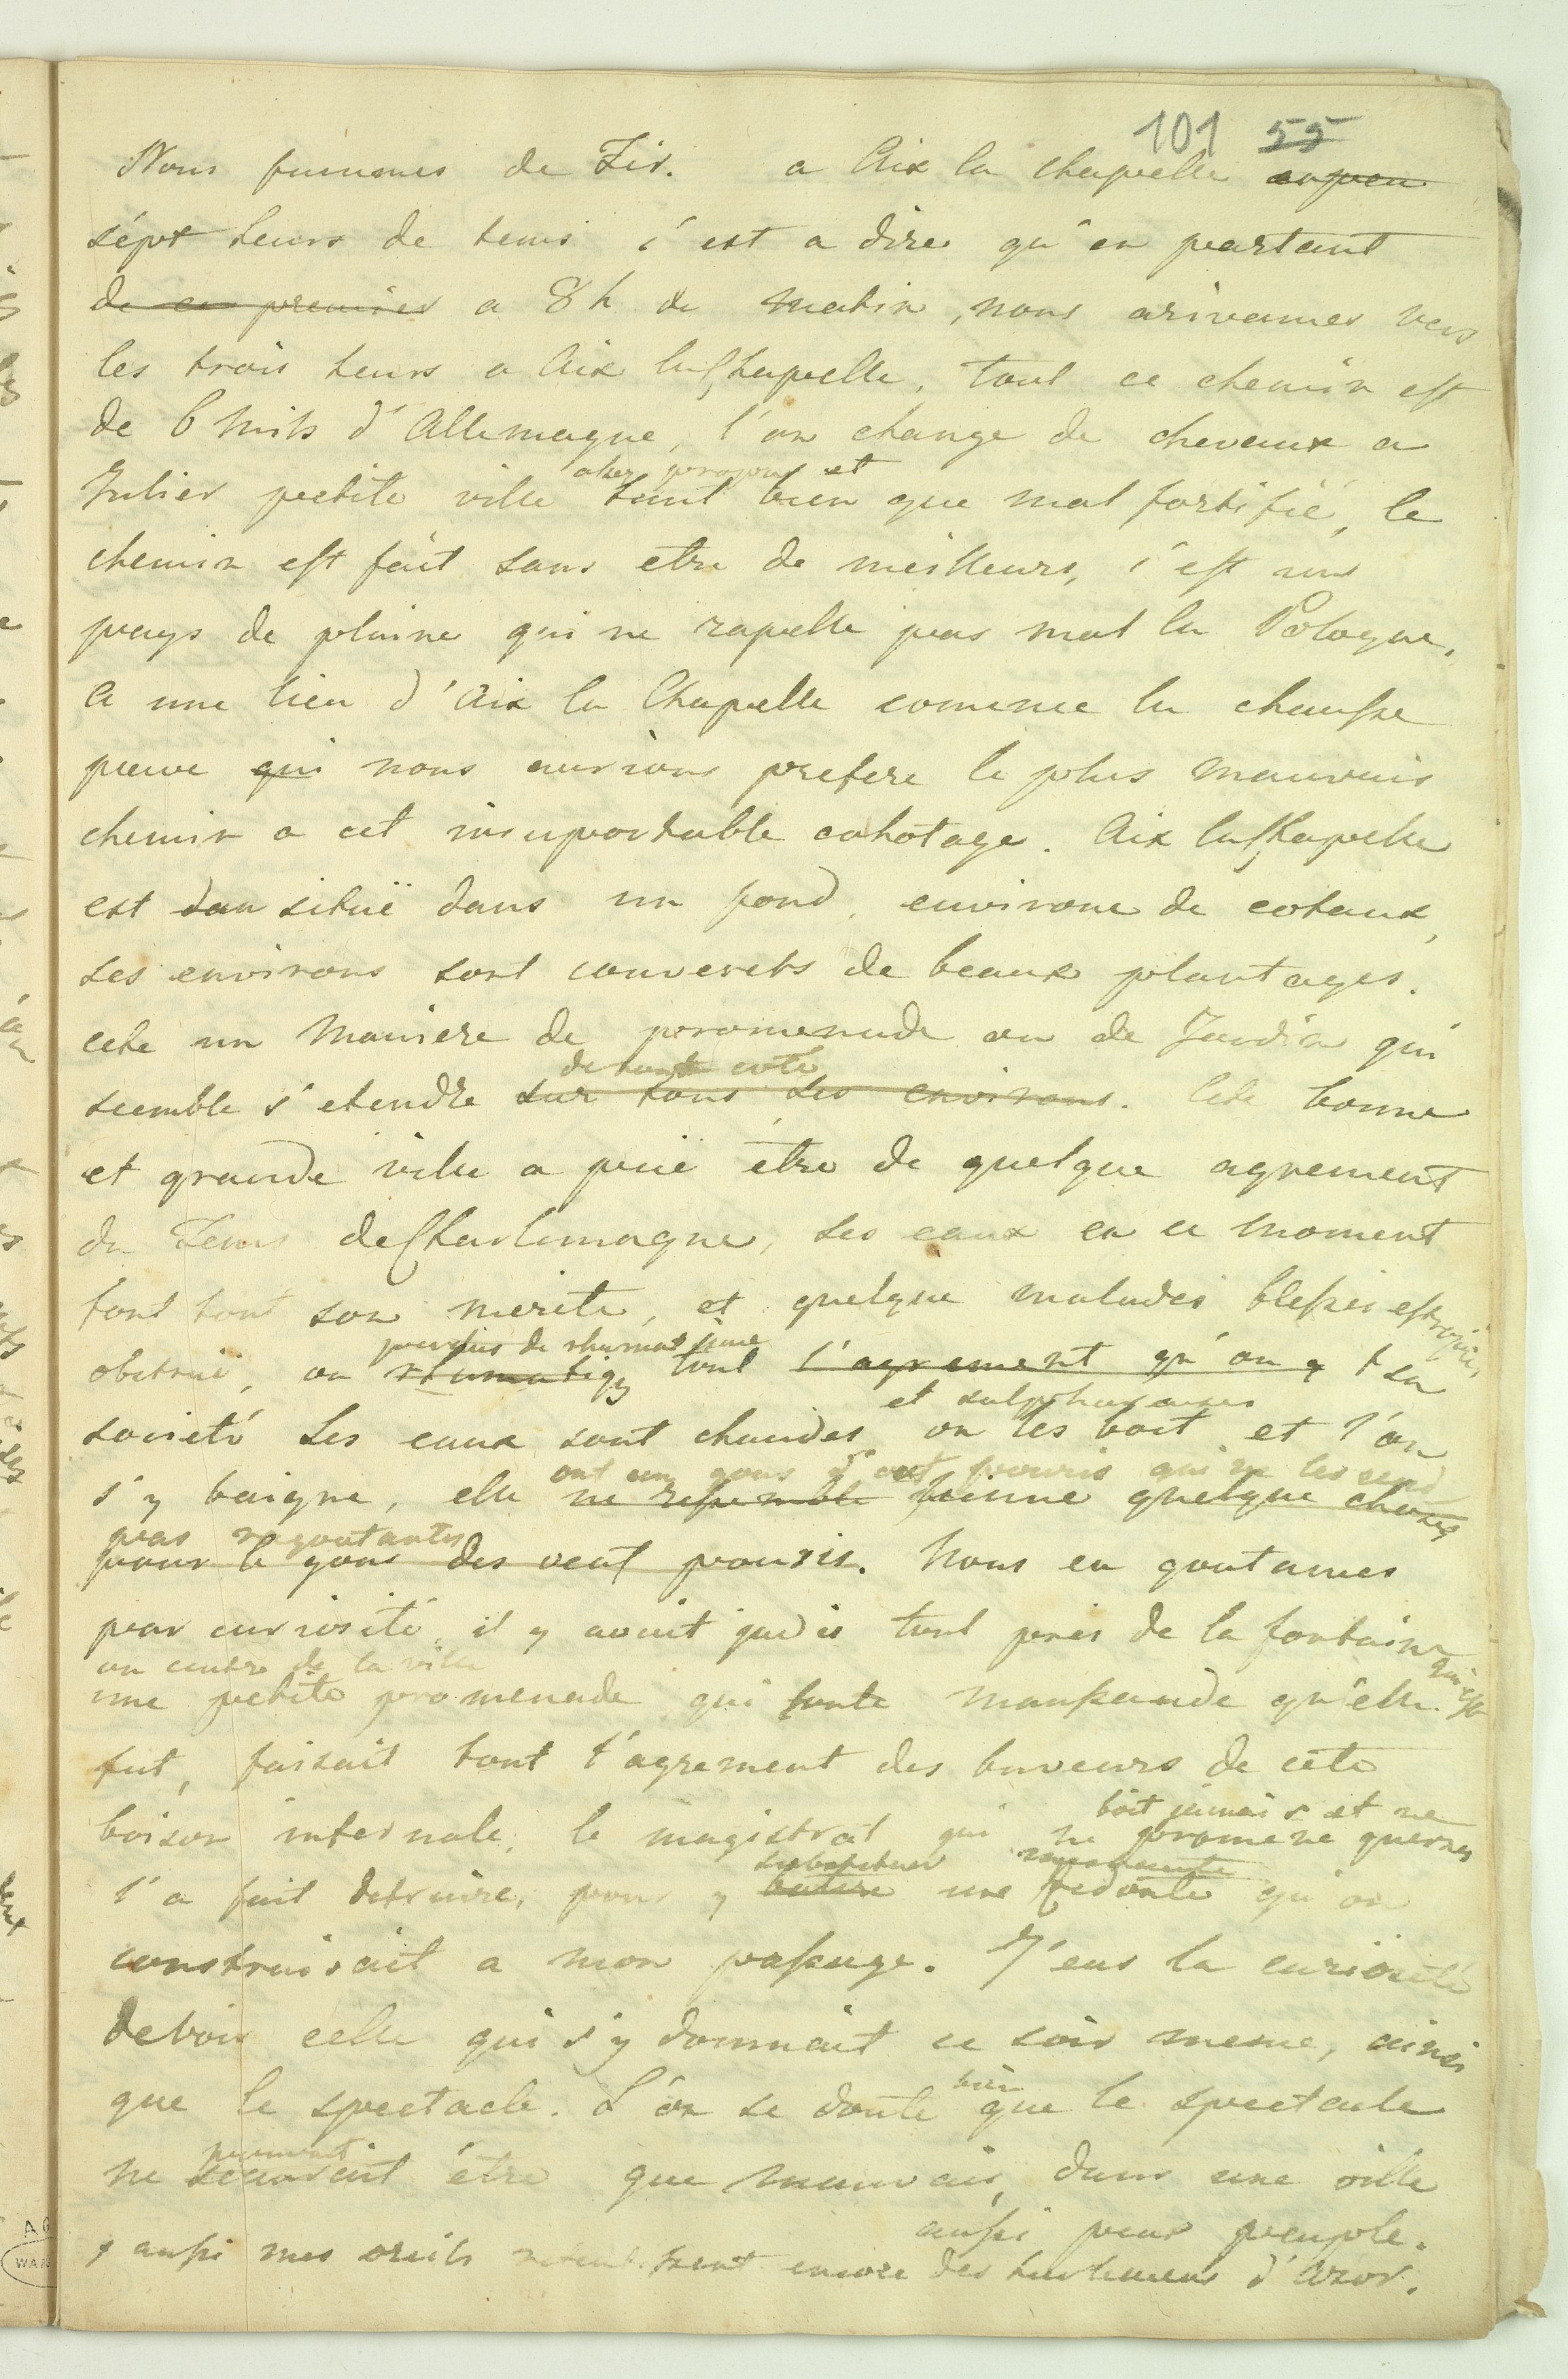 101 55
Nous fummes de Zir. a Aix la chapelle
sépt heurs de tems c'est a dire qu'en partant
de ce premier a 8 h du matin, nous arivames vers
les trois heurs a Aix la Chapelle, tout ce chemin est
de 6 mils d'Allemagne, l'on change de chevaux a
assez propre et
Julier petite ville tant bien que mal fortifié, le
chemin est fait sans etre de meilleurs, c'est un
pays de plaine qui ne rapelle pas mal la Pologne.
A une lieu d'Aix la Chapelle comence la chausse
pavve qui nous aurions prefere le plus mauvais
chemin a cet insuportable cahotage. Aix la Chapelle
est dan situé dans un fond, environe de cotaux,
ses environs sont couverets de beaux plantages.
cete un maniere de promenade ou de Jardin qui
de tout coté
seemble s'etendre sur tous ses environs. Cete bonne
et grande ville a puë être de quelque agrement
du Tems de Charlemagne, ses eaux en ce moment
font tout son merite, et quelque malades blessés estropiés,
perclus de rhumatisme
obstrué, ou rhumatigs tout l'agrement qu'on y sa
et sulphureuses
societé Les eaux sont chaudes on les boit et l'on
ont un gous d'oeuf pouris qui ne les rend
s'y baigne, elle ne resemble quelque choses
pas ragoutantes
pour le gous des oeuf pouris. Nous en goutames
par curiosité, il y avait jadis tout pres de la fontaine qui est
au centre de la ville
une petite promenade qui toute maussade qu'elle
fut, faisait tout l'agrement des buveurs de cete
boit jamais et ne
boison infernale, le magistrat qui ne promene gueres
substituer
l'a fait detruire, pour y batire une redoute qu'on
construisait a mon passage. J'eus la curiosité
de voir celle qui s'y donnait ce soir meme, ainsi
bien
que le spectacle. L'on se doute que le spectacle
pouvait
ne scaurait être que mauvais, dans une ville
aussi peux peuple.
aussi mes oreils encore des hurlemens d'Azor.